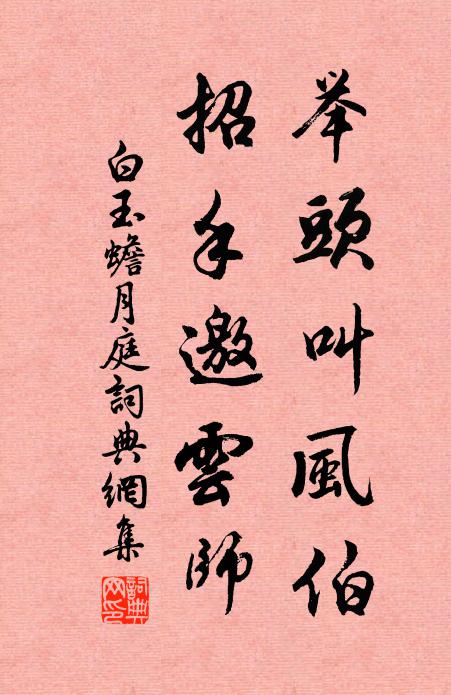 举頭叫風伯
招手邀雲師
白玉蟾月庭詞典網集
詞典
網印